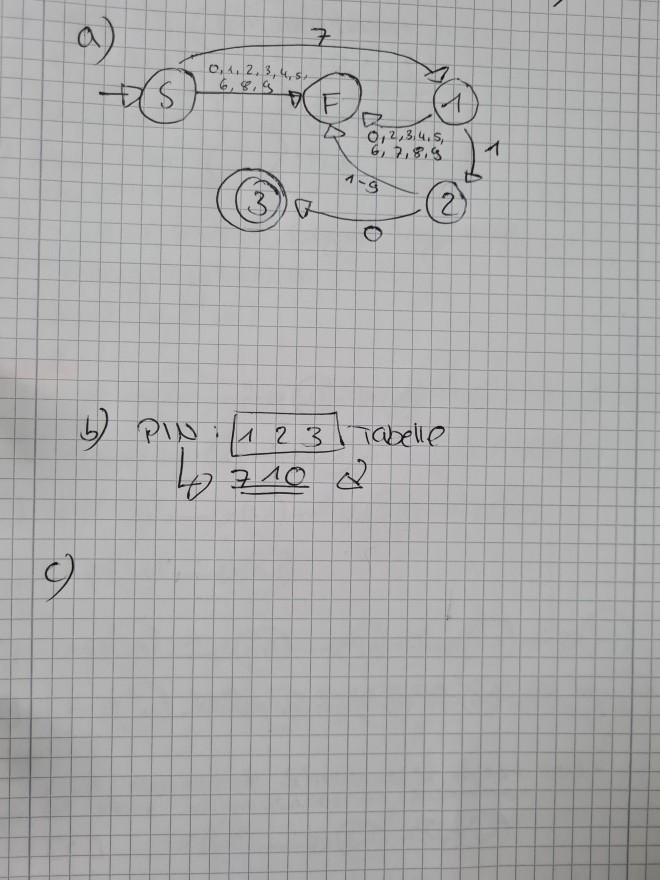 a)
7
S
0, 1, 2, 3, 4, 5,
6, 8, 9
F
1
0, 2, 3, 4, 5,
6, 7, 8, 9
1
1-9
3
2
0
b) PIN: 1 2 3 Tabelle
710
c)